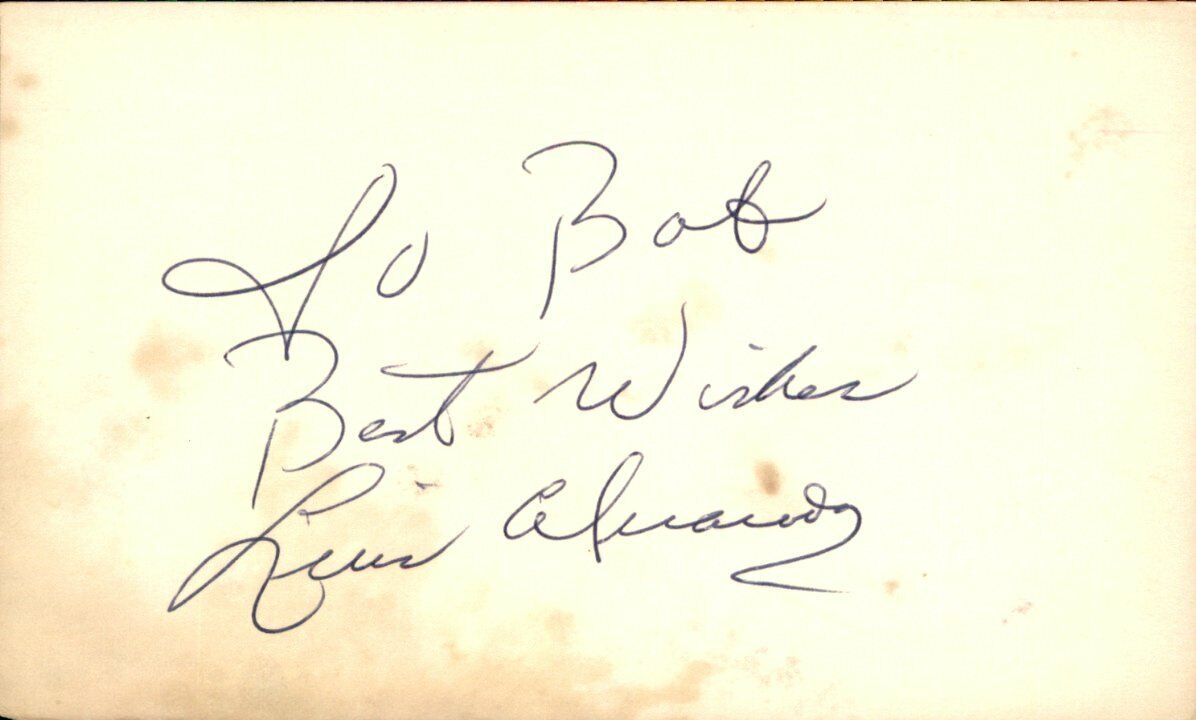 To Bob
Best Wishes
Luis Alvarado